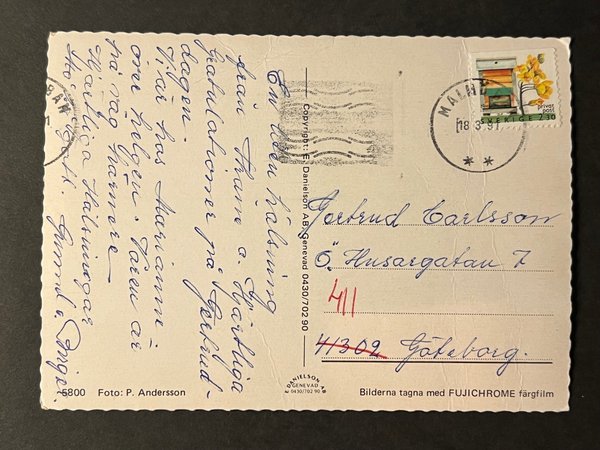 En liten hälsning
från Thann o. Hjärtliga
Gratulationer på Gertrud-
dagen.
Vi är hos Marianne
över helgen. Våren är
på väg närmare
Hjärtliga Hälsningar
Gunnel o. Börje.
5800 Foto: P. Andersson
Copyright: E. Danielson AB, Genevad 0430/702 90
DANIELSON AB
GENEVAD
0430/702 90
MALMÖ
18.3.91
privat
post
SVERIGE 2.30
Gertrud Carlsson
Ö. Husargatan 7
411
41302 Göteborg.
Bilderna tagna med FUJICHROME färgfilm